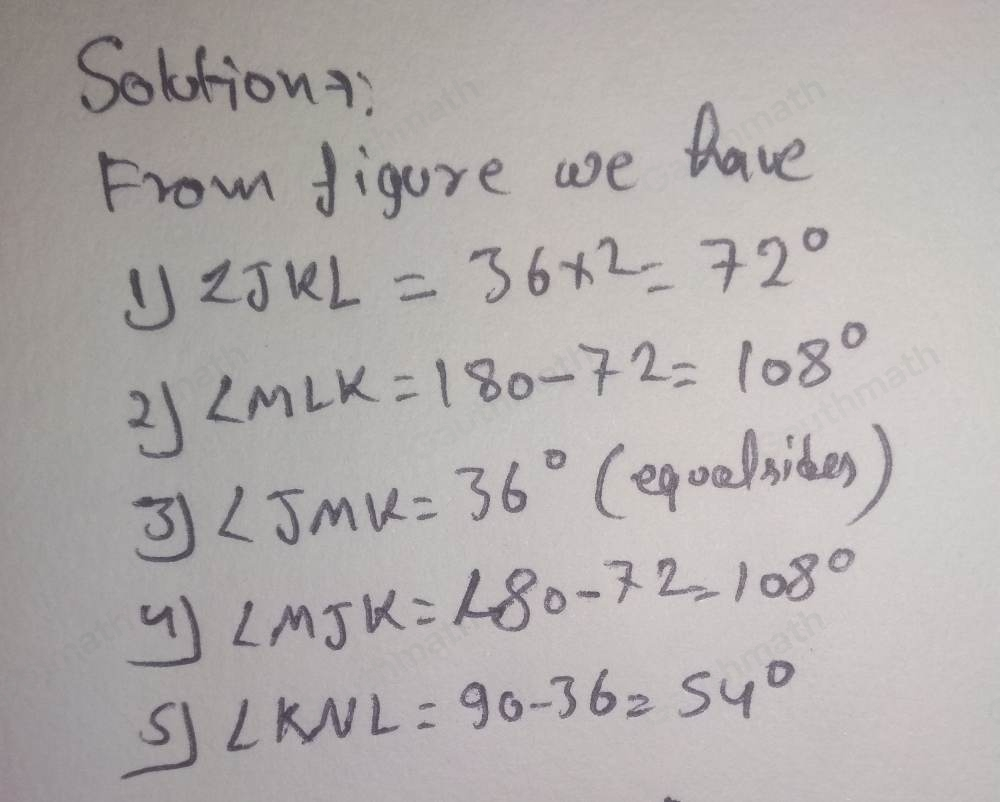 Solution→:
From figure we have
1) ∠JKL = 36×2= 72°
2) ∠MLK = 180-72= 108°
3) ∠JMK= 36° (equalsides)
4) ∠MJK= 180-72=108°
5) ∠KNL= 90-36= 54°